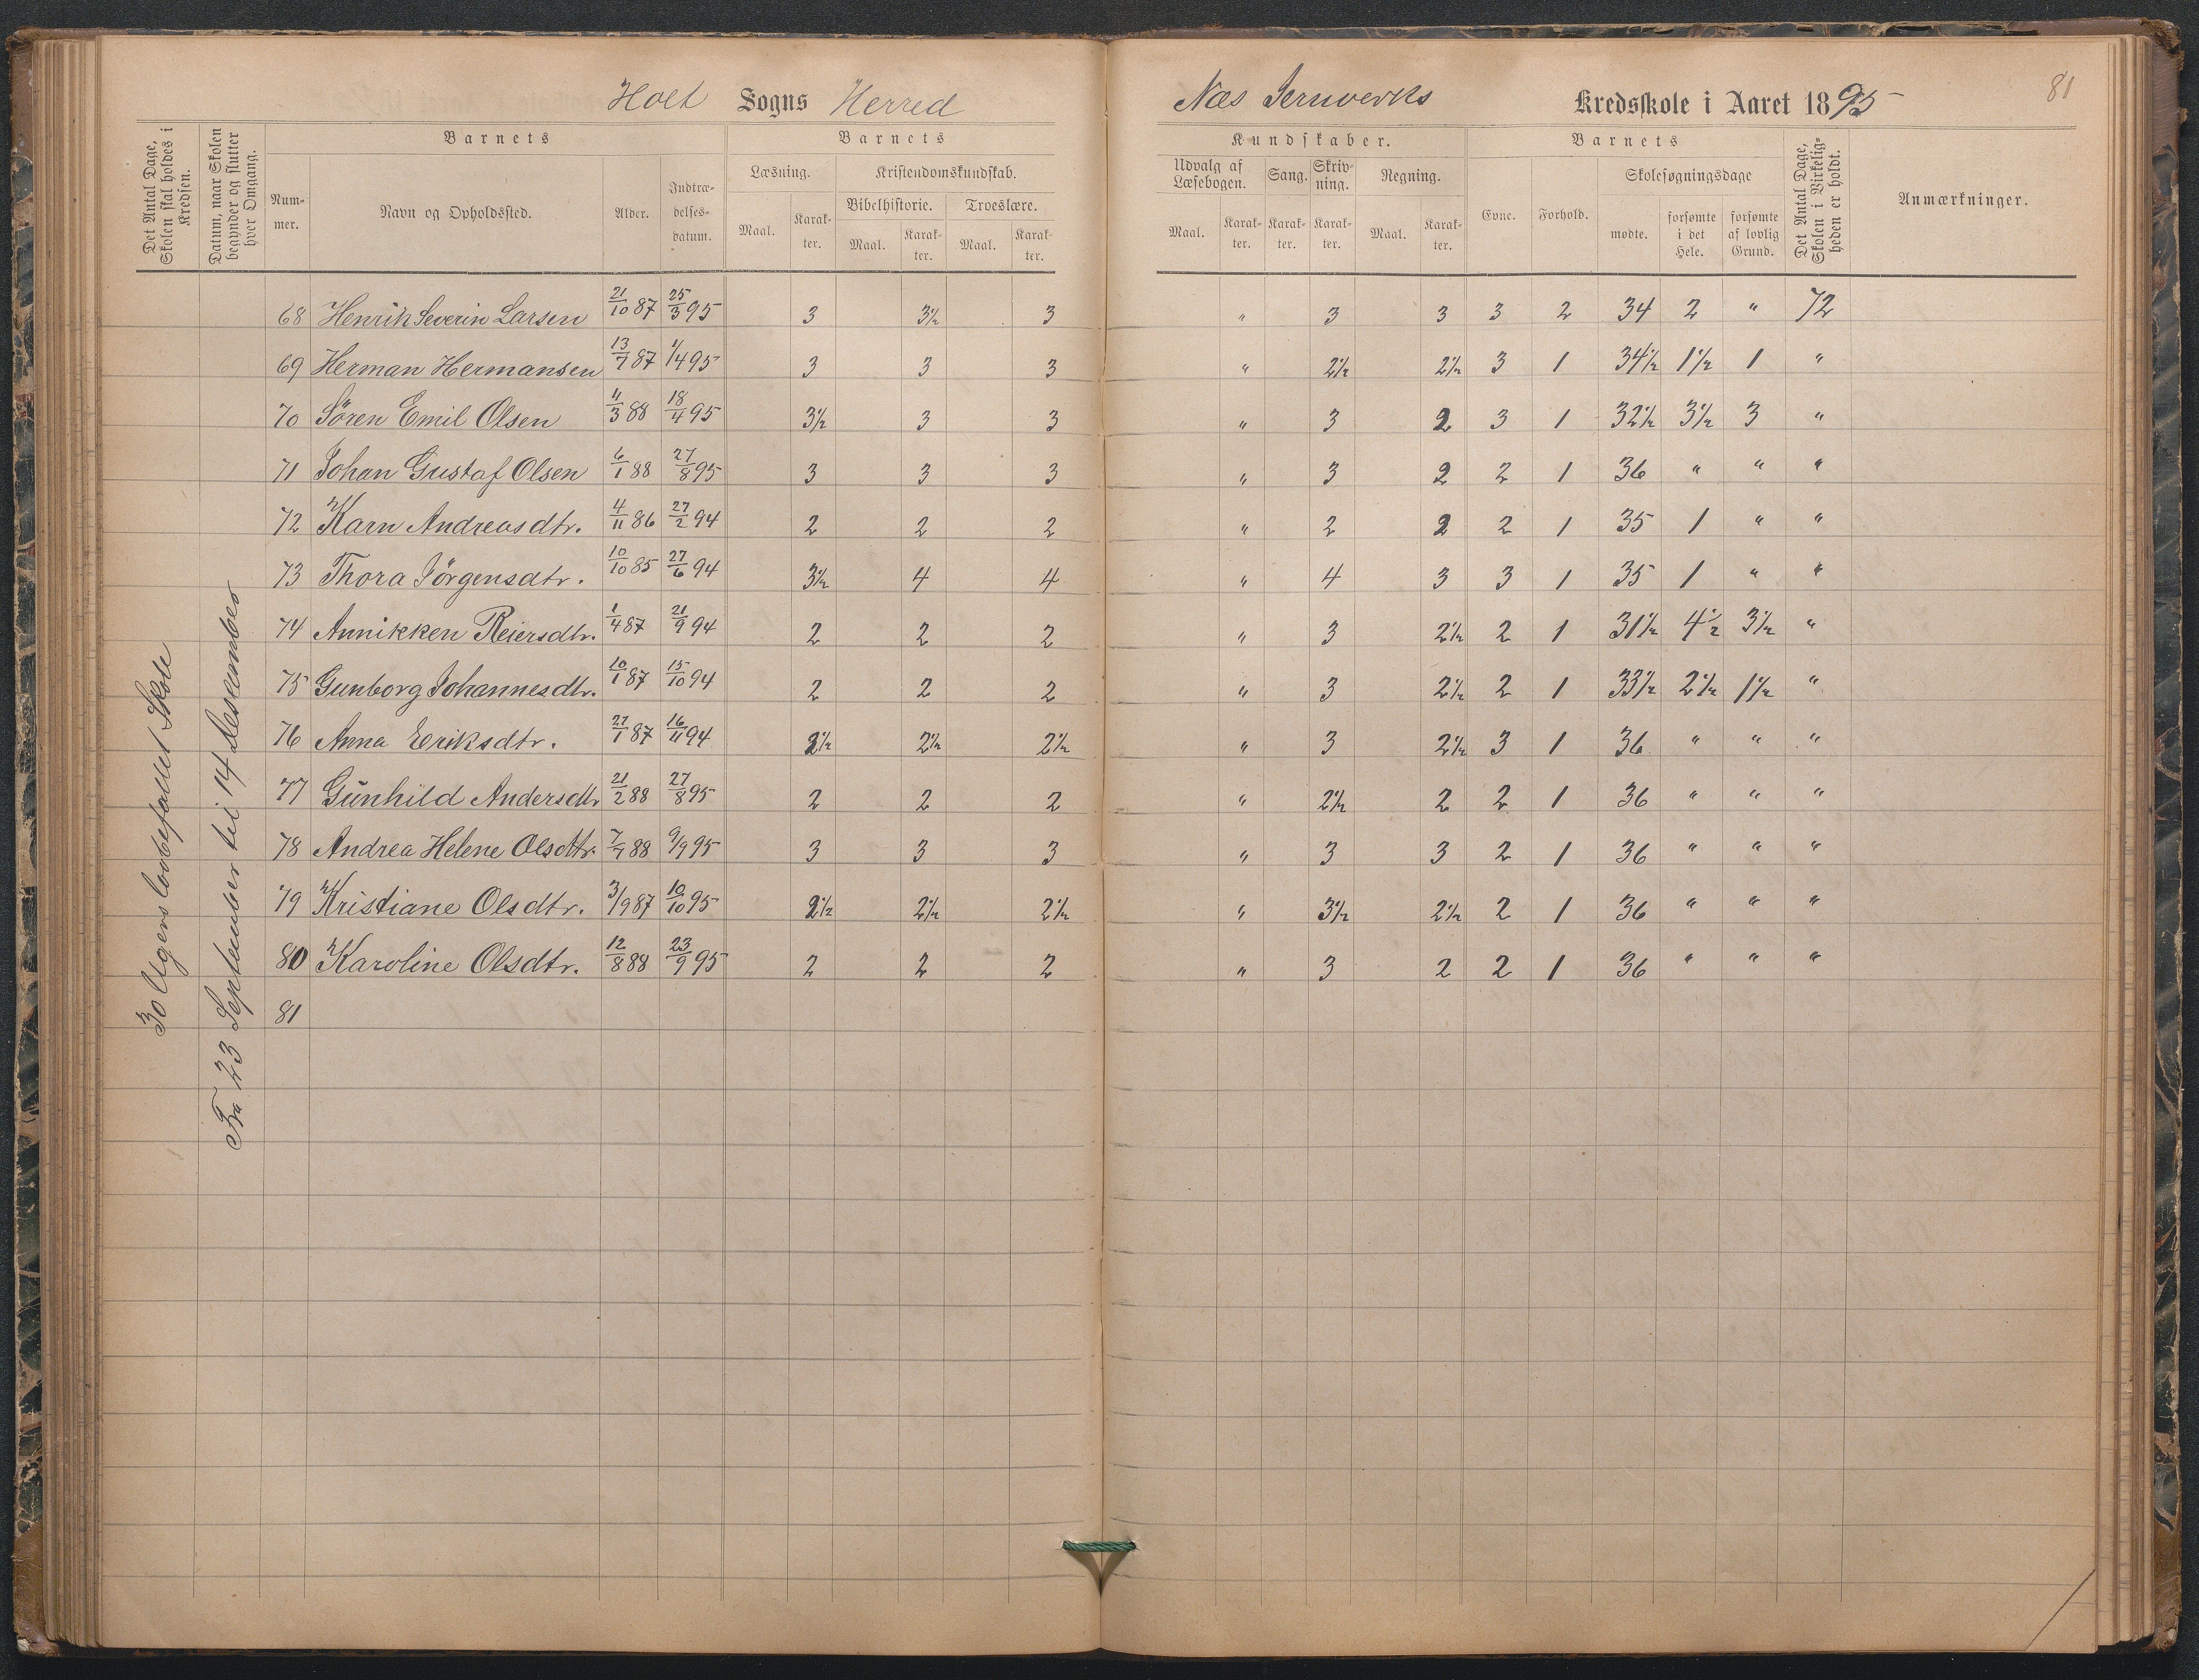 Holt Sogns Herred
Næs Jernverks Kredsskole i Aaret 1895
81
Det Antal Dage, Skolen skal holdes i Kredsen.
Datum, naar Skolen begynder og slutter hver Omgang.
Barnets
Nummer.
Navn og Opholdssted.
Alder.
Indtrædelsesdatum.
Barnets
Læsning.
Maal.
Karakter.
Kristendomskundskab.
Bibelhistorie.
Maal.
Karakter.
Troeslære.
Maal.
Karakter.
Kundskaber.
Udvalg af Læsebogen.
Maal.
Karakter.
Sang.
Karakter.
Skrivning.
Karakter.
Regning.
Maal.
Karakter.
Barnets
Evne.
Forhold.
Skolesøgningsdage
mødte.
forsømte i det Hele.
forsømte af lovlig Grund.
Det Antal Dage, Skolen i Virkeligheden er holdt.
Anmærkninger.
30 Ugers lovbefallet Skole
Fra 23 September til 14 Desember
68 Henrik Severin Larsen 21/10 87 25/3 95 3 3½ 3 " 3 3 3 2 34 2 " 72
69 Herman Hermansen 13/7 87 1/4 95 3 3 3 " 2½ 2½ 3 1 34½ 1½ 1 "
70 Sören Emil Olsen 11/3 88 18/4 95 3½ 3 3 " 3 2 3 1 32½ 3½ 3 "
71 Johan Gustaf Olsen 6/1 88 27/8 95 3 3 3 " 3 2 2 1 36 " " "
72 Karn Andreasdtr. 4/11 86 27/2 94 2 2 2 " 2 2 2 1 35 1 " "
73 Thora Jörgensdtr. 10/10 85 27/6 94 3½ 4 4 " 4 3 3 1 35 1 " "
74 Annikken Reiersdtr. 1/4 87 21/9 94 2 2 2 " 3 2½ 2 1 31½ 4½ 3½ "
75 Gunborg Johannesdtr. 10/1 87 15/10 94 2 2 2 " 3 2½ 2 1 33½ 2½ 1½ "
76 Anna Eriksdtr. 27/1 87 16/11 94 2½ 2½ 2½ " 3 2½ 3 1 36 " " "
77 Gunhild Andersdtr 21/2 88 27/8 95 2 2 2 " 2½ 2 2 1 36 " " "
78 Andrea Helene Olsdtr. 7/7 88 9/9 95 3 3 3 " 3 3 2 1 36 " " "
79 Kristiane Olsdtr. 3/9 87 10/10 95 2½ 2½ 2½ " 3½ 2½ 2 1 36 " " "
80 Karoline Olsdtr. 12/8 88 23/9 95 2 2 2 " 3 2 2 1 36 " " "
81